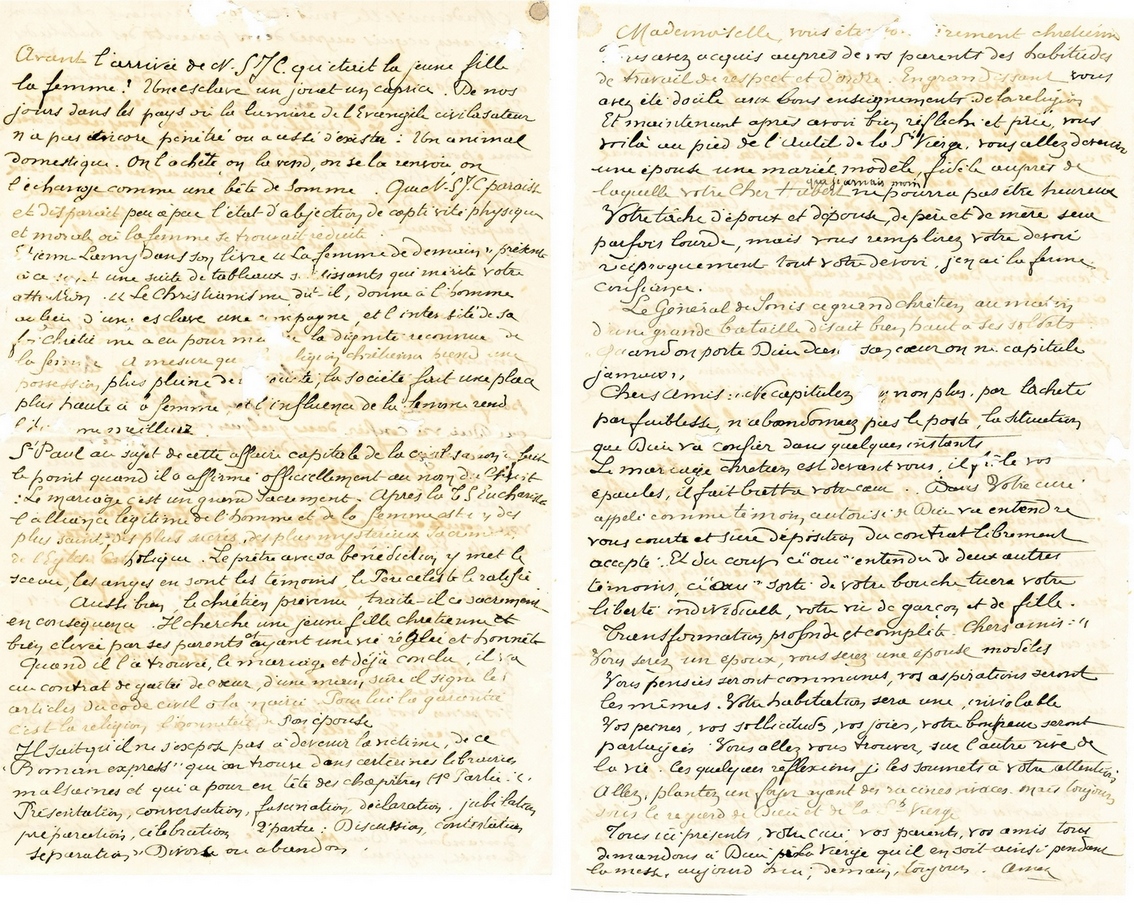 Avant l'arrivée de N.S.J.C. qu'était la jeune fille
la femme! Une esclave un jouet un caprice. De nos
jours dans les pays où la lumière de l'Evangile civilisateur
n'a pas encore pénétré ou a cessé d'exister. Un animal
domestique. On l'achète, on la vend, on se la renvoie on
l'échange comme une bête de somme. Que N.S.J.C paraisse
et disparait peu a peu l'état d'abjection de captivité physique
et morale où la femme se trouvait réduite.
Lamy dans son livre "La femme de demain", présente
à ce sujet une suite de tableaux saisissants qui mérite votre
attention. "Le Christianisme, dit-il, donne à l'homme
au lieu d'une esclave une compagne, et l'intensité de sa
foi chrétienne a eu pour la dignité reconnue de
la femme. A mesure que religion chrétienne prend une
possession, plus pleine de la société fait une place
plus haute à la femme et l'influence de la femme rend
meilleur.
St Paul au sujet de cette affaire capitale de la
le point quand il a affirmé officiellement au nom du Christ
"Le mariage c'est un grand Sacrement. Après la T.S. Eucharistie
l'alliance légitime de l'homme et de la femme est un des
plus saints, des plus sacrés, des plus mystérieux Sacrements
de l'Eglise catholique. Le prêtre avec sa bénédiction y met le
sceau, les anges en sont les témoins, le Père céleste le ratifie.
Aussi bien, le chrétien prévenu, traite-il ce sacrement
en conséquence. Il cherche une jeune fille chrétienne et
bien élevée par ses parents et ayant une vie réglée et honnête
Quand il l'a trouvée, le mariage est déjà conclu, il va
au contrat de gaité de cœur, d'une main sûre il signe les
articles du code civil à la mairie. Pour lui la garantie
c'est la religion, l'honnêteté de son épouse
Il sait qu'il ne s'expose pas à devenir la victime, de ce
"Roman express" que on trouve dans certaines librairies
malsaines et qui a pour en tête des chapitres 1e Partie:
Présentation, conversation, fascination, déclaration, jubilation
préparation, célébration 2e partie: Discussion, contestation
séparation, "Divorce ou abandon.
Mademoiselle, vous été chrétienne
vous avez acquis auprès de vos parents des habitudes
de travail de respect et d'ordre. En grandissant vous
avez été docile aux bons enseignements de la religion
Et maintenant après avoir bien réfléchi et prié, vous
voilà au pied de l'Autel de la Ste Vierge, vous allez devenir
une épouse une mariée modèle, fidèle auprès de
laquelle votre Cher Hubert ne pourra pas être heureux
Votre tâche d'époux et d'épouse, de père et de mère sera
parfois lourde, mais vous remplirez votre devoir
réciproquement tout votre devoir, j'en ai la ferme
confiance.
Le Général de Sonis ce grand chrétien, au matin
d'une grande bataille disait bien haut à ses soldats
"Quand on porte Dieu dans son cœur on ne capitule
jamais",
Chers Amis: ne capitulez non plus, par lâcheté
par faiblesse, n'abandonnez pas le poste, la situation
que Dieu va confier dans quelques instants
Le mariage chrétien est devant vous, il plie vos
épaules, il fait battre votre cœur. Dans Votre curé
appelé comme témoin, autorisé de Dieu va entendre
vous courte et sûre déposition du contrat librement
accepté. Et du coup ce "oui" entendu de deux autres
témoins, ce "oui" sorte de votre bouche tuera votre
liberté individuelle, votre vie de garçon et de fille.
Transformation, profonde et complète. Chers amis:
Vous serez un époux, vous serez une épouse modèles
Vous pensées seront communes, vos aspirations seront
les mêmes. Votre habitation sera une, inviolable
Vos peines, vos sollicitudes, vos joies, votre bonheur seront
partagées. Vous allez vous trouver, sur l'autre rive de
la vie. Ces quelques réflexions je les soumets à votre attention
Allez, plantez un foyer ayant des racines vivaces, mais toujours
sous le regard de Dieu et de la Ste Vierge
Tous ici présents, votre curé vos parents, vos amis tous
demandons à Dieu la Vierge qu'il en soit ainsi pendant
la messe, aujourd'hui, demain, toujours. Amen